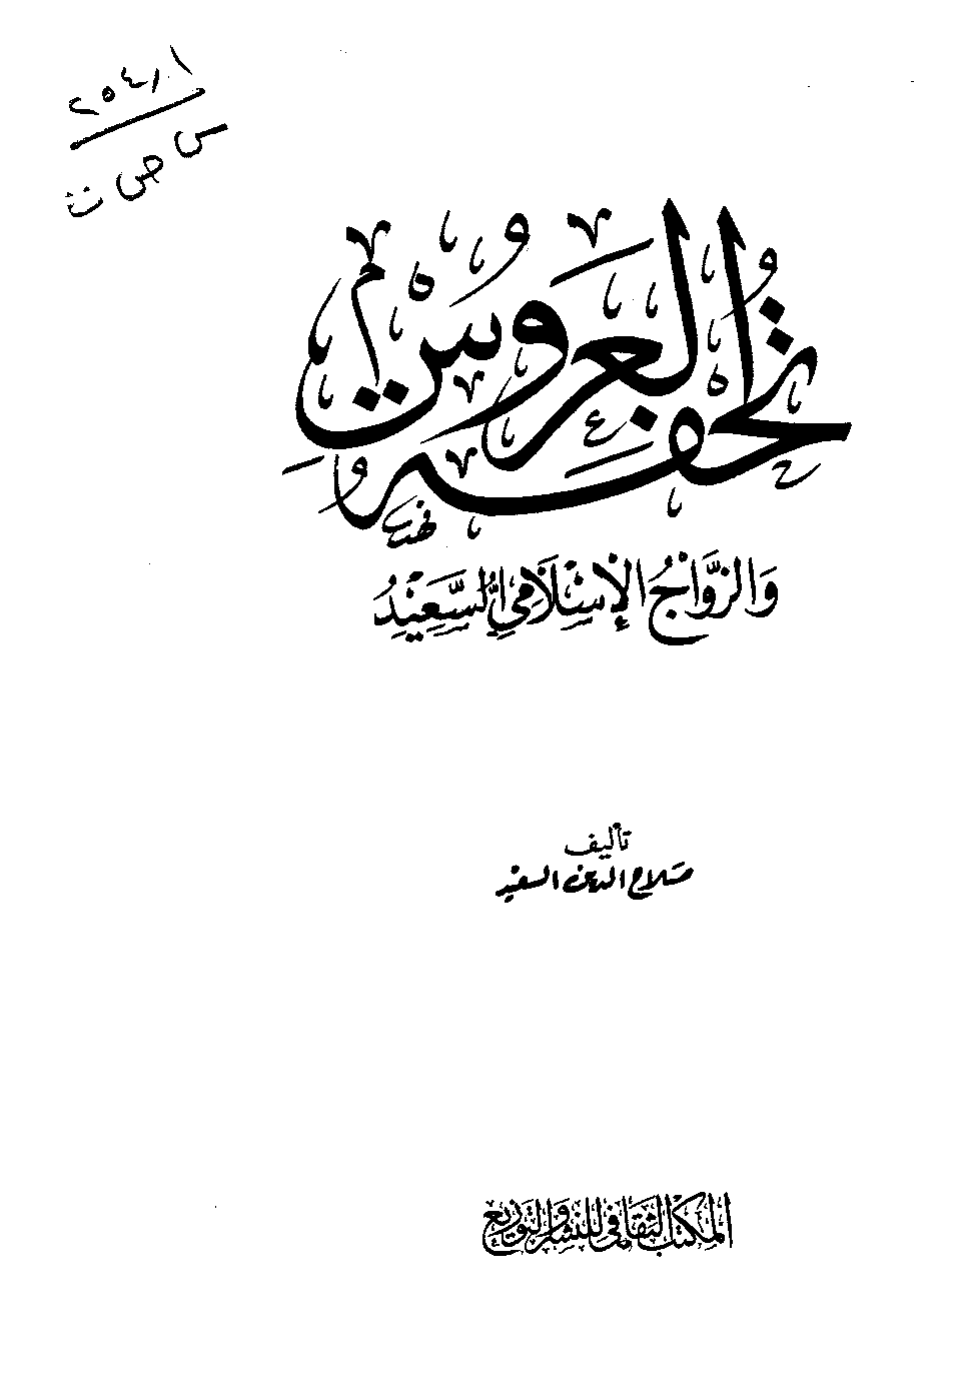 ٢٥٤,١
س ص ت
تحفة العروس
والزَّوَاجُ الإِسْلَامِي السَّعِيدُ
تأليف
صلاح الدين السعيد
المكتب الثقافي للنشر والتوزيع